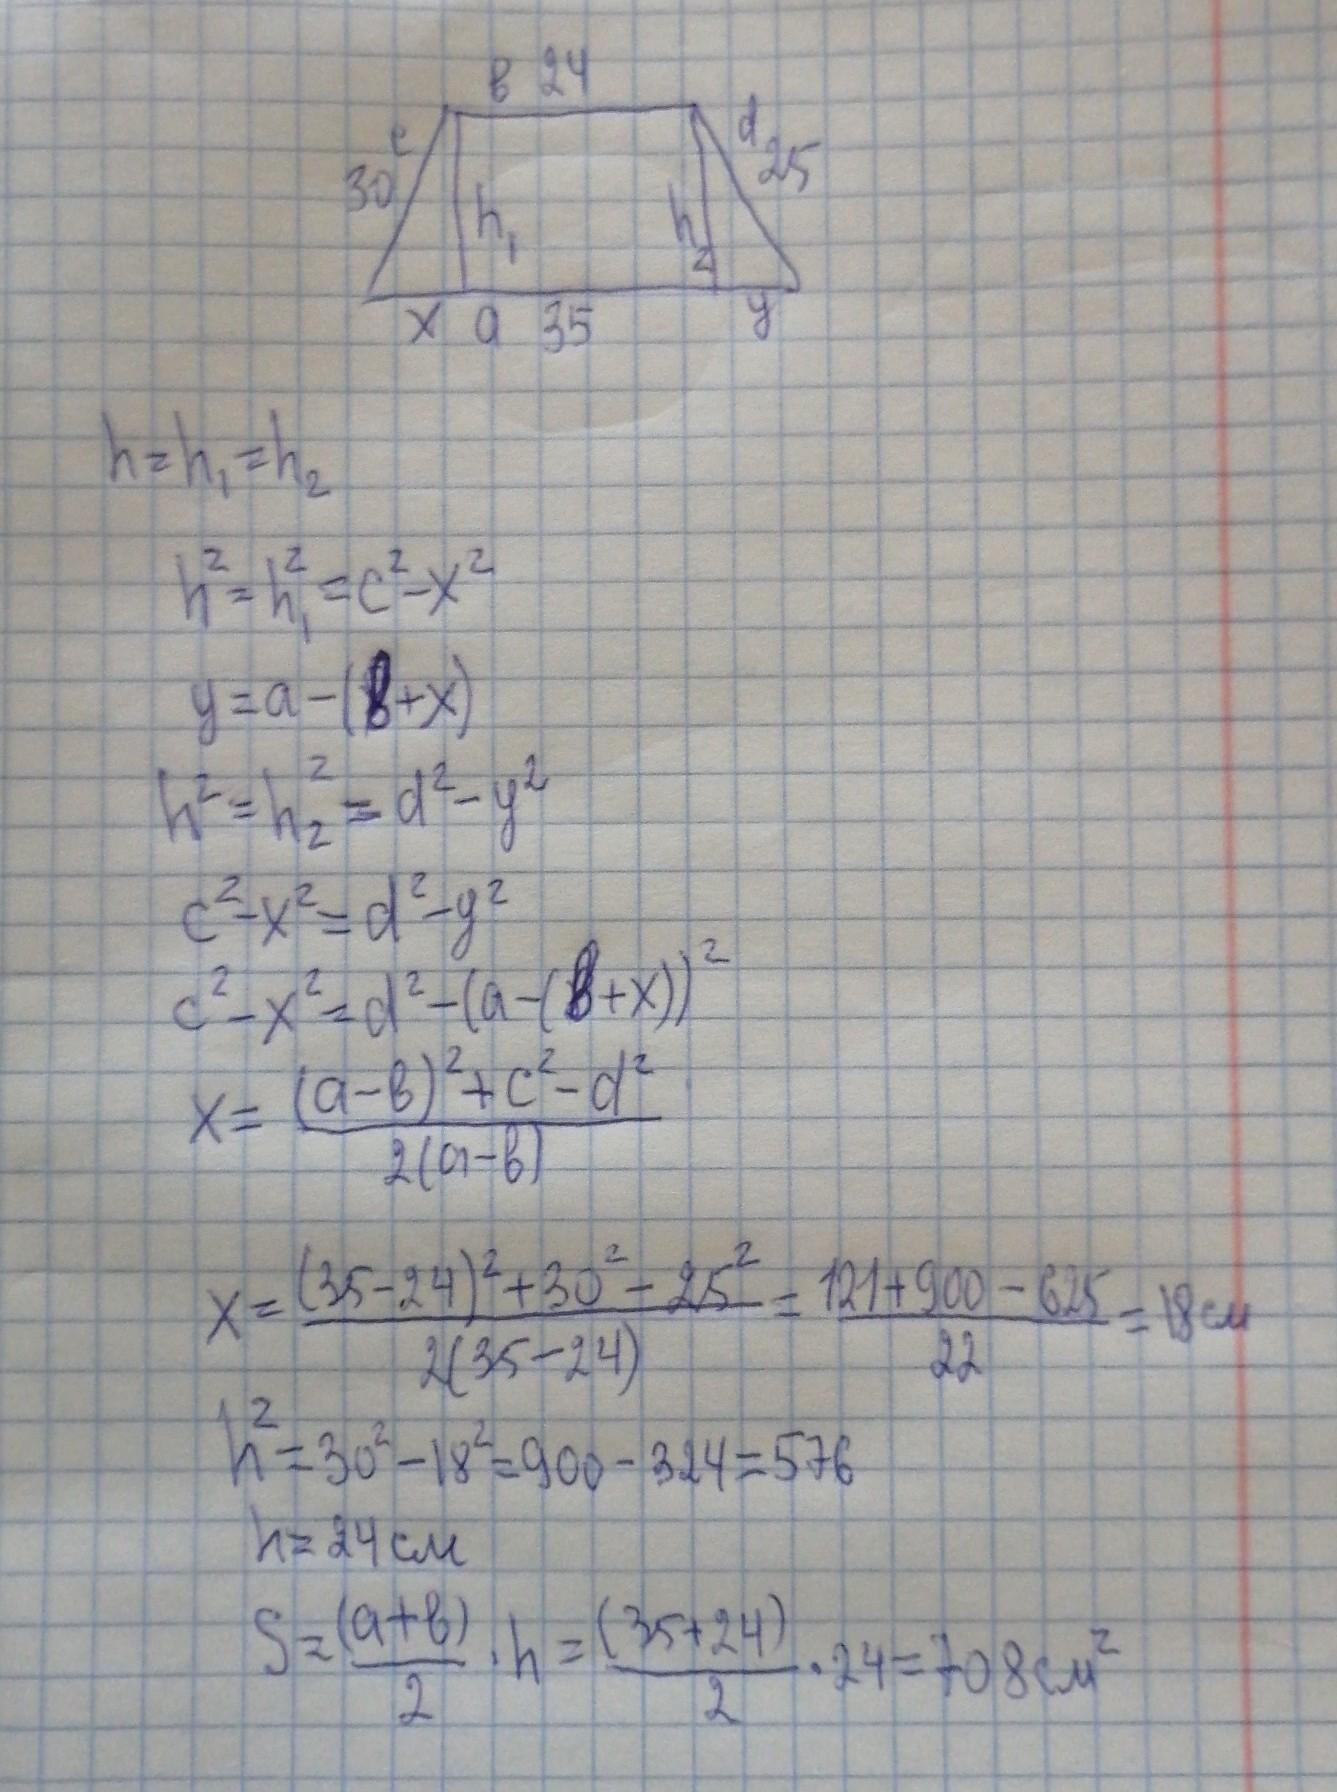 в 24
c
d
30
25
h₁
h₂
x a 35 y
h=h₁=h₂
h²=h₁²=c²-x²
y=a-(в+x)
h²=h₂²=d²-y²
c²-x²=d²-y²
c²-x²=d²-(a-(в+x))²
x=((a-в)²+c²-d²)/(2(a-в))
x=((35-24)²+30²-25²)/(2(35-24))=(121+900-625)/22=18см
h²=30²-18²=900-324=576
h=24см
S=(a+в)/2·h=(35+24)/2·24=708см²